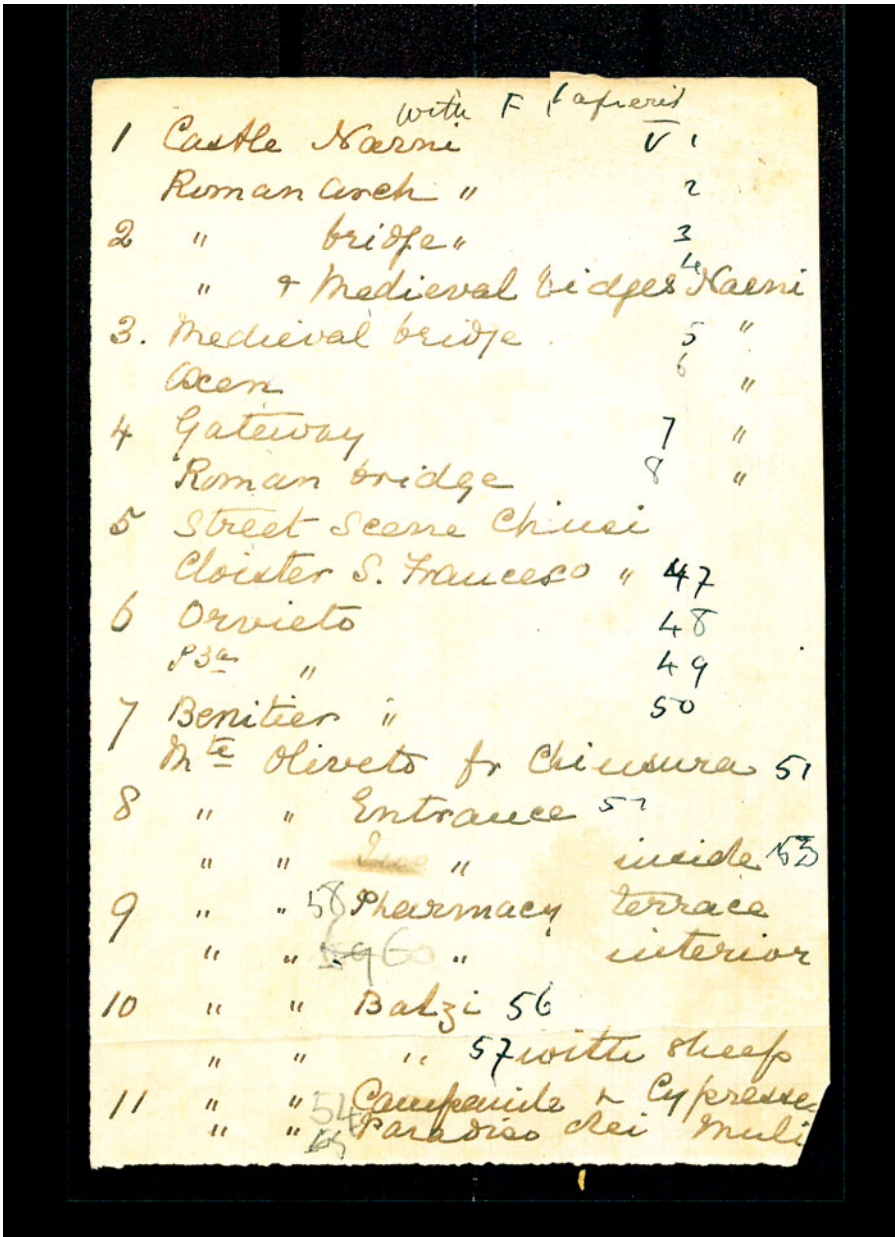 with F
1 Castle Narni V 1
Roman Arch " 2
2 " bridge " 3
" & Medieval bidges 4 Narni
3. Medieval bridge 5 "
Oxen 6 "
4 Gateway 7 "
Roman bridge 8 "
5 Street Scene Chiusi
Cloister S. Francesco " 47
6 Orvieto 48
P3a " 49
7 Benitier " 50
Mte Oliveto fr Chiusura 51
8 " " Entrance 52
" " " inside 53
9 " " 58 Pharmacy terrace
" " 59 60 " interior
10 " " Balzi 56
" " " 57 with sheep
11 " " 54 Campanile & Cypresses
" " Paradiso dei Muli